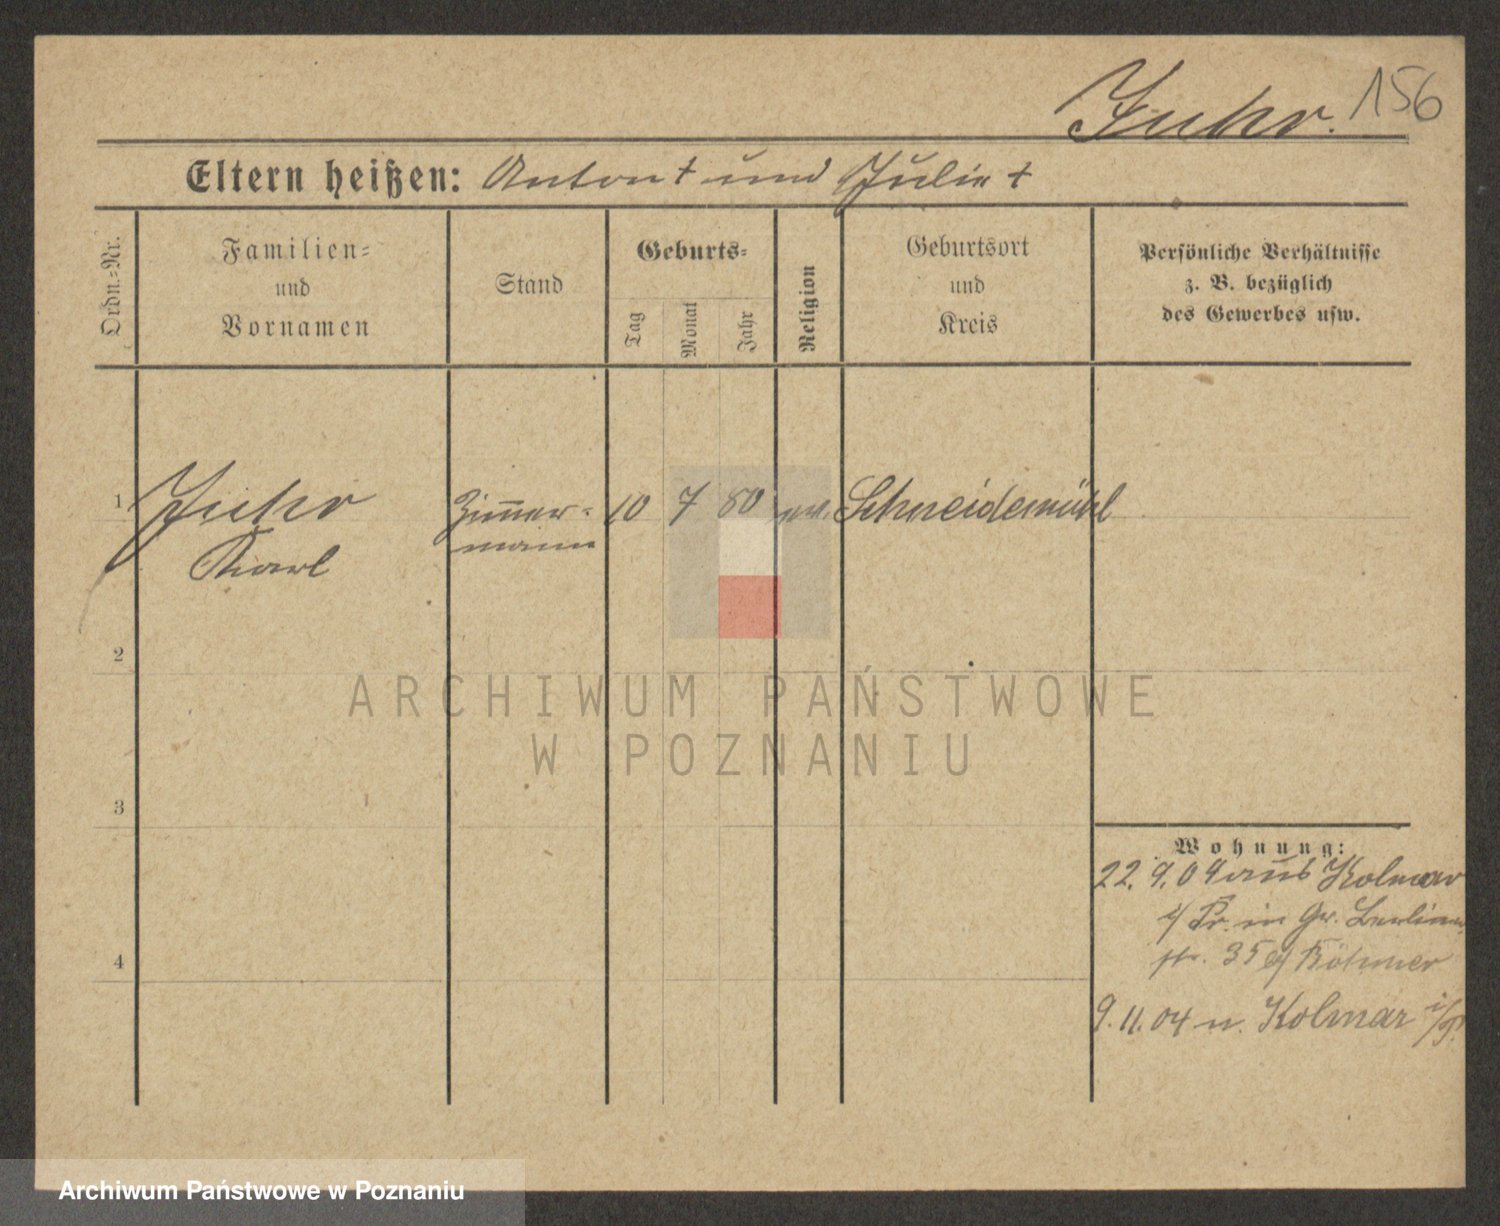 Juhr. 156
Eltern heißen: Anton † und Julie †
Ordn.-Nr.
Familien-
und
Vornamen
Stand
Geburts-
Tag
Monat
Jahr
Religion
Geburtsort
und
Kreis
Persönliche Verhältnisse
z. B. bezüglich
des Gewerbes usw.
1 Juhr Zimmer- 10 7 80 ev. Schneidemühl
Karl mann
2
ARCHIWUM PAŃSTWOWE
W POZNANIU
3
Wohnung:
22. 9. 04 aus Kolmar
i/ Pr. in Gr. Berliner
4
str. 35 b/ Böhmer
9. 11. 04 n. Kolmar i/P.
Archiwum Państwowe w Poznaniu